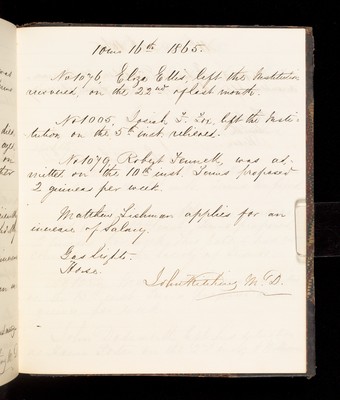 10mo 16th 1865.
No 1076, Eliza Ellis, left the Institution
recovered, on the 22nd of last month.
No 1005, Josiah F. Fox, left the Insti-
tution on the 5th inst. relieved.
No 1079, Robert was ad-
mitted on the 10th inst. Terms proposed
2 guineas per week.
Matthew Lishman applies for an
increase of Salary.
Gas Lights.
Hose.
John Kitching M.D.